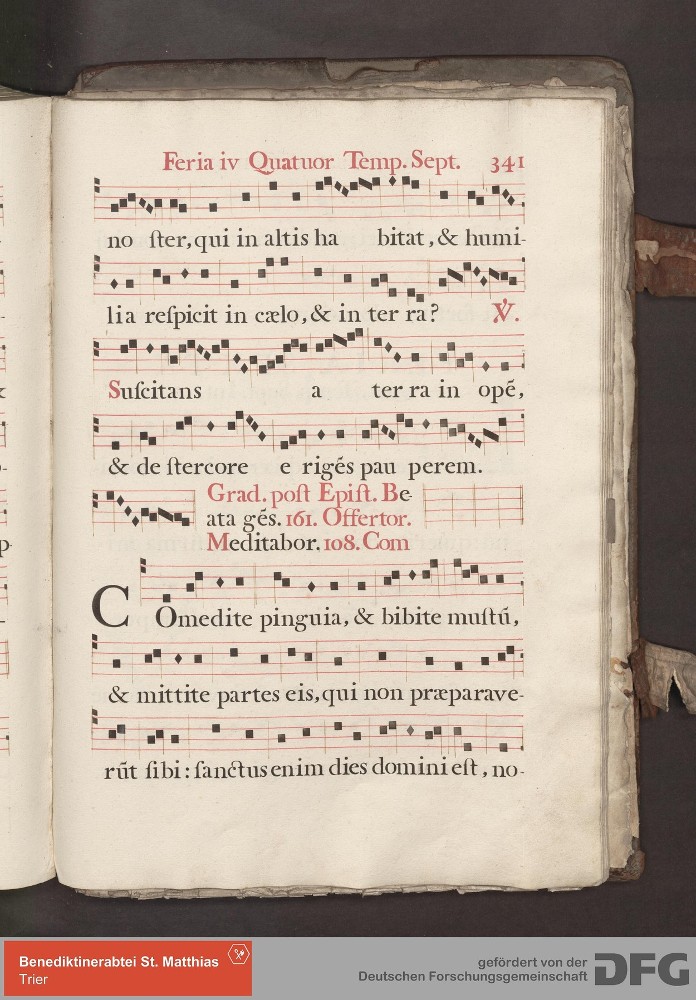 Feria iv Quatuor Temp. Sept. 341
no ſter, qui in altis ha bitat, & humi-
lia reſpicit in cælo, & in ter ra? ℣.
Suſcitans a ter ra in opē,
& de ſtercore e rigēs pau perem.
Grad. poſt Epiſt. Be-
ata gēs. 161. Offertor.
Meditabor. 108. Com
COmedite pinguia, & bibite muſtū,
& mittite partes eis, qui non præparave-
rūt ſibi: ſanctus enim dies domini eſt, no-
Benediktinerabtei St. Matthias
Trier
gefördert von der
Deutschen Forschungsgemeinschaft
DFG